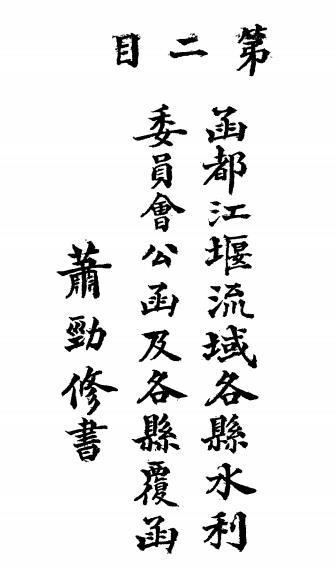 第二目
函都江堰流域各縣水利
委員會公函及各縣覆函
蕭勁修書